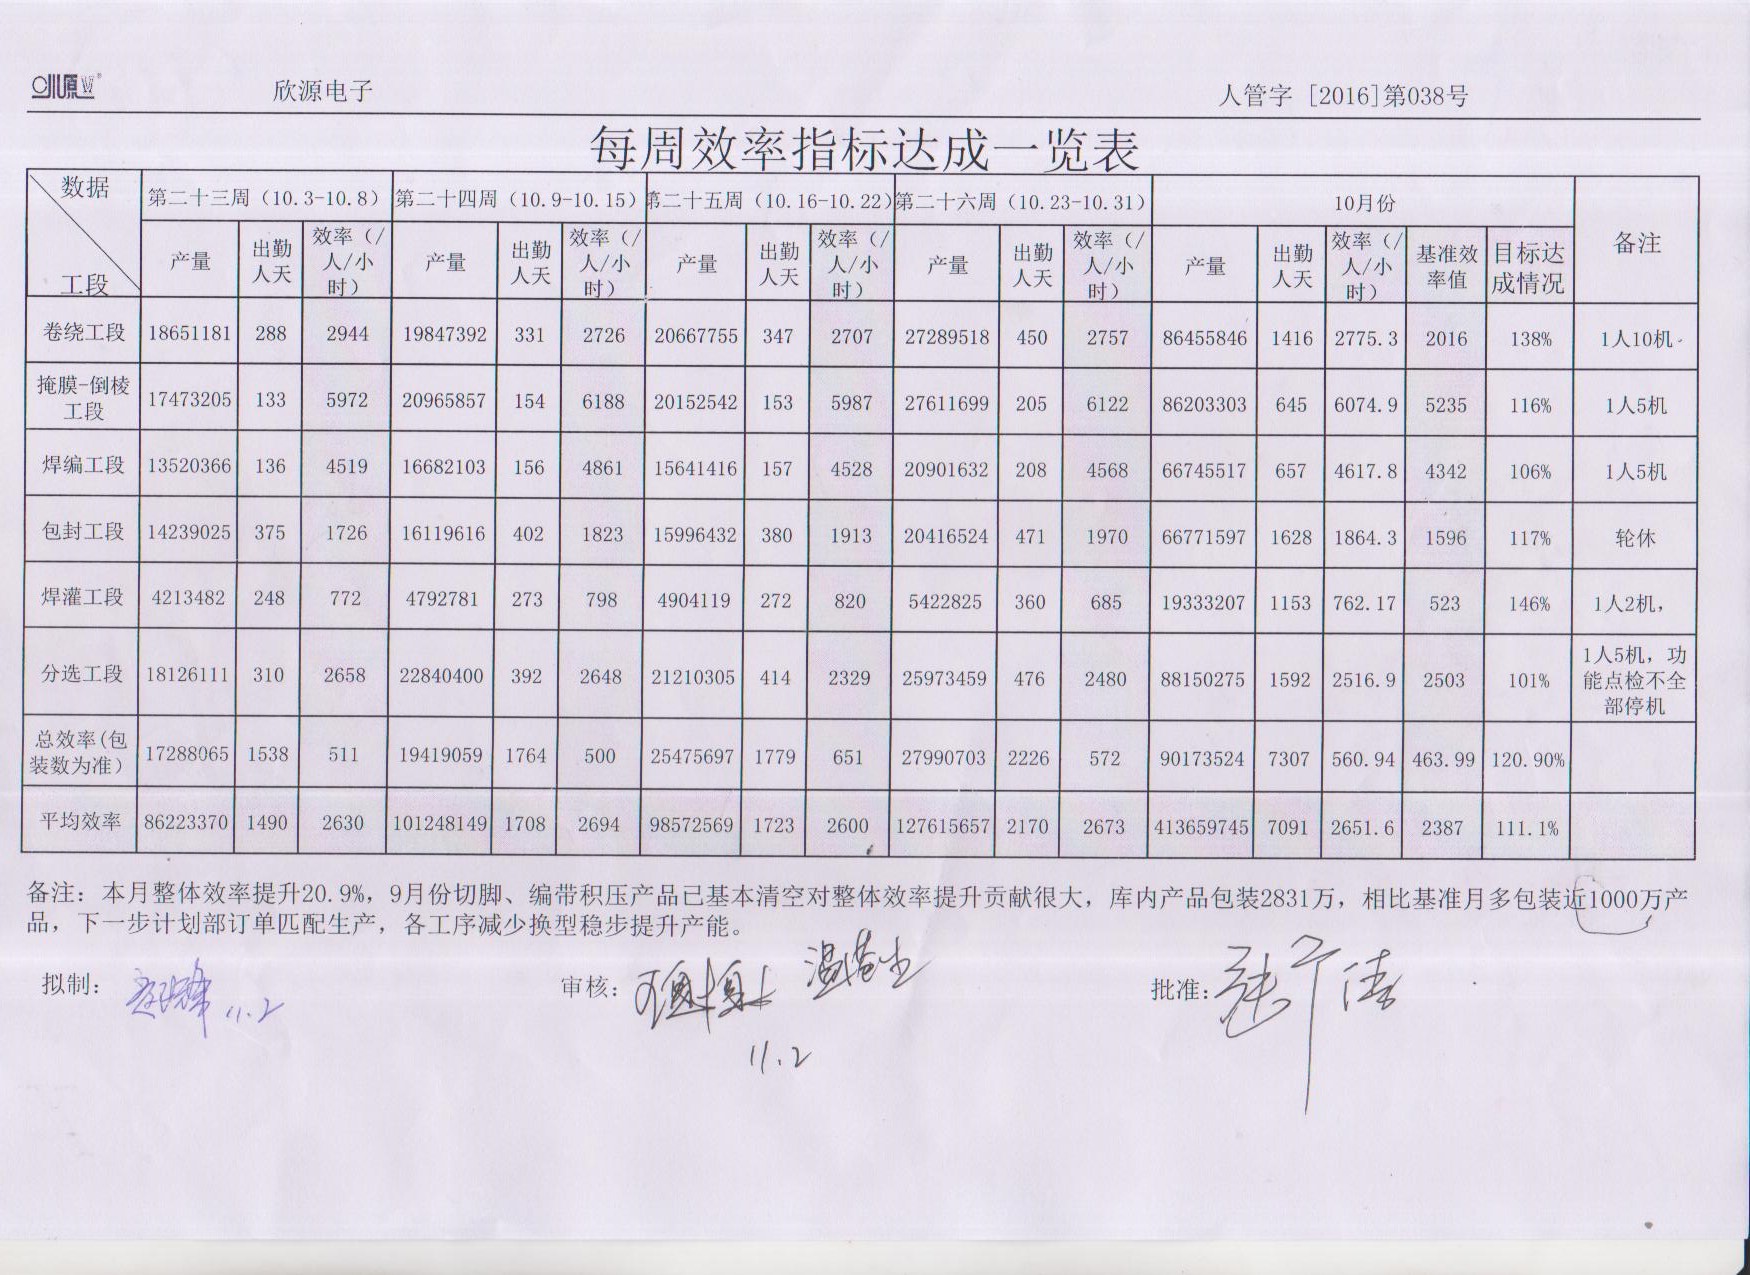 欣源电子 人管字 [2016]第038号
每周效率指标达成一览表
数据 工段 第二十三周（10.3-10.8） 第二十四周（10.9-10.15） 第二十五周（10.16-10.22） 第二十六周（10.23-10.31） 10月份 备注
产量 出勤人天 效率（/人/小时） 产量 出勤人天 效率（/人/小时） 产量 出勤人天 效率（/人/小时） 产量 出勤人天 效率（/人/小时） 产量 出勤人天 效率（/人/小时） 基准效率值 目标达成情况
卷绕工段 18651181 288 2944 19847392 331 2726 20667755 347 2707 27289518 450 2757 86455846 1416 2775.3 2016 138% 1人10机
掩膜-倒棱工段 17473205 133 5972 20965857 154 6188 20152542 153 5987 27611699 205 6122 86203303 645 6074.9 5235 116% 1人5机
焊编工段 13520366 136 4519 16682103 156 4861 15641416 157 4528 20901632 208 4568 66745517 657 4617.8 4342 106% 1人5机
包封工段 14239025 375 1726 16119616 402 1823 15996432 380 1913 20416524 471 1970 66771597 1628 1864.3 1596 117% 轮休
焊灌工段 4213482 248 772 4792781 273 798 4904119 272 820 5422825 360 685 19333207 1153 762.17 523 146% 1人2机，
分选工段 18126111 310 2658 22840400 392 2648 21210305 414 2329 25973459 476 2480 88150275 1592 2516.9 2503 101% 1人5机，功能点检不全部停机
总效率(包装数为准） 17288065 1538 511 19419059 1764 500 25475697 1779 651 27990703 2226 572 90173524 7307 560.94 463.99 120.90%
平均效率 86223370 1490 2630 101248149 1708 2694 98572569 1723 2600 127615657 2170 2673 413659745 7091 2651.6 2387 111.1%
备注：本月整体效率提升20.9%，9月份切脚、编带积压产品已基本清空对整体效率提升贡献很大，库内产品包装2831万，相比基准月多包装近1000万产
品，下一步计划部订单匹配生产，各工序减少换型稳步提升产能。
拟制： 11.2 审核： 批准：
11.2